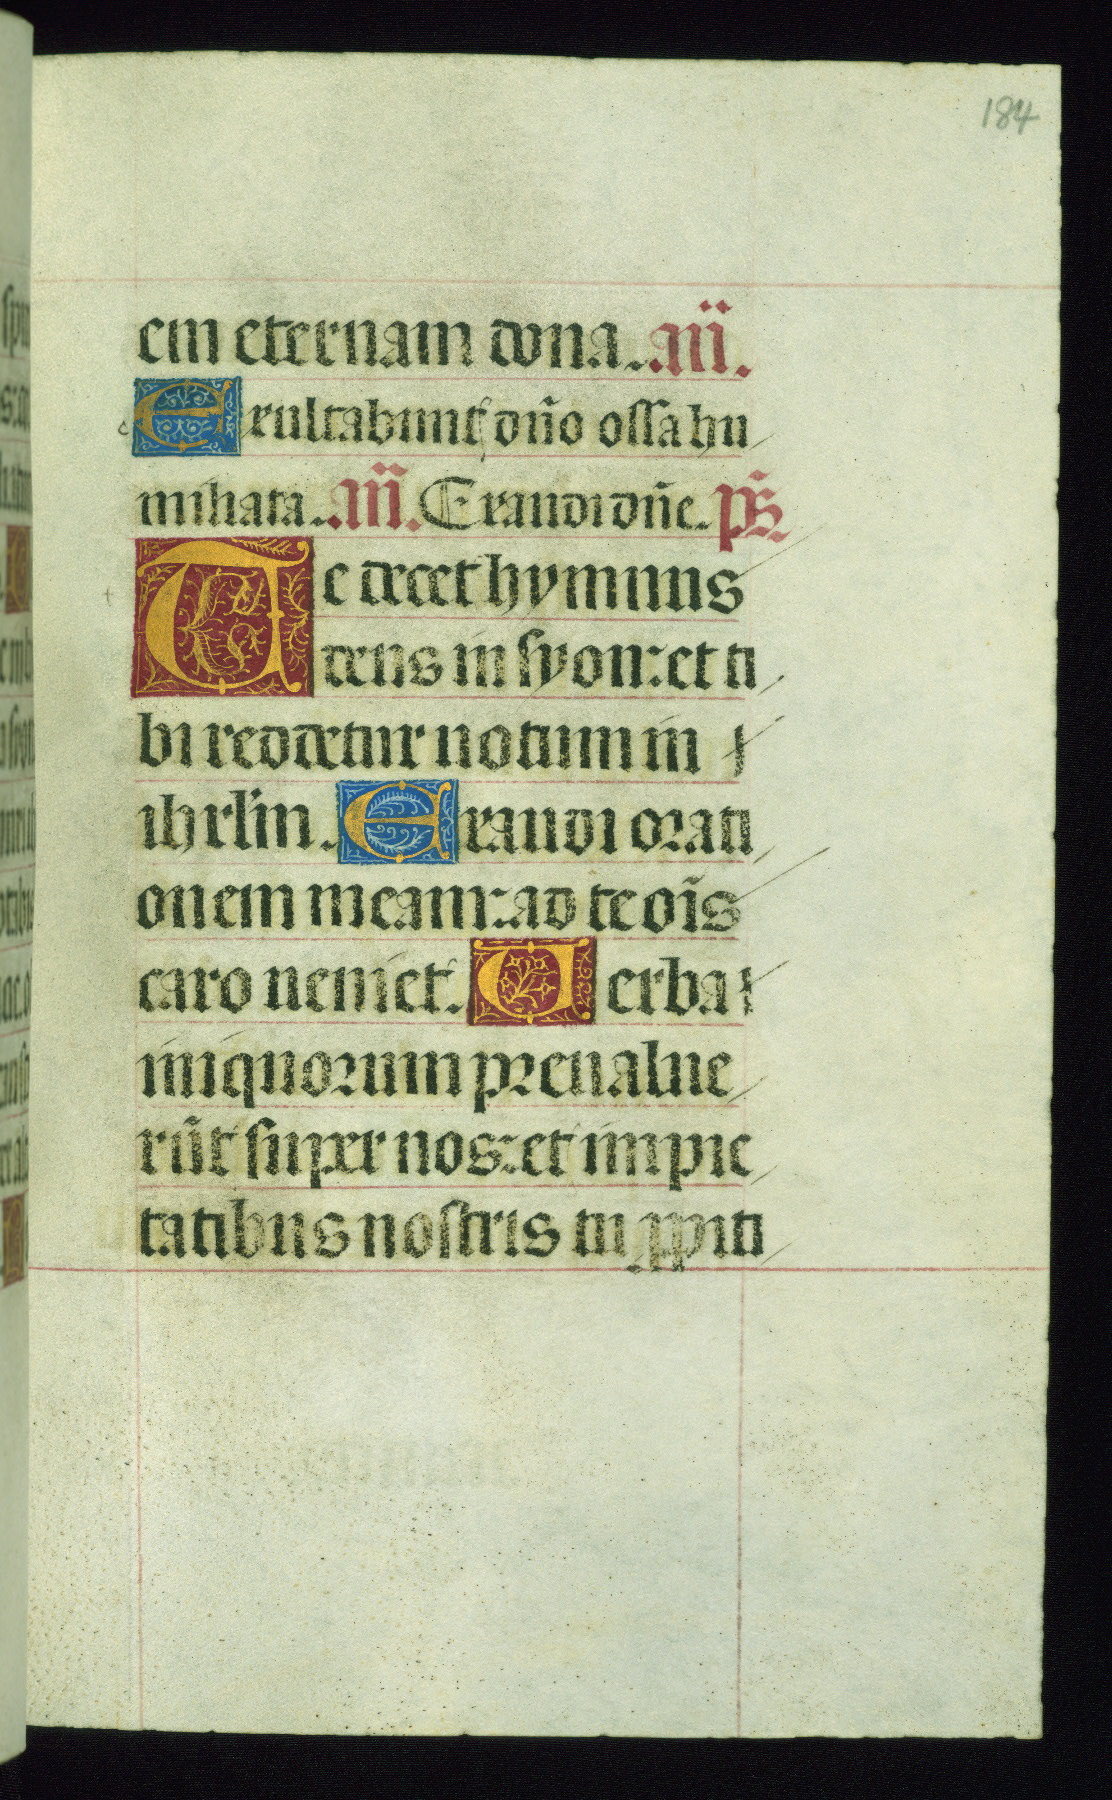 184
em eternam dona. .an̄.
Exultabunt dn̄o ossa hu
miliata. .an̄. Exaudi dn̄e. ps̄.
Te decet hymnus
deus in syon: et ti
bi reddetur uotum in
ihrl̄m. Exaudi orati
onem meam: ad te oīs
caro ueniet. Uerba
iniquorum preualue
rūt super nos: et impie
tatibus nostris tu ꝓpiti